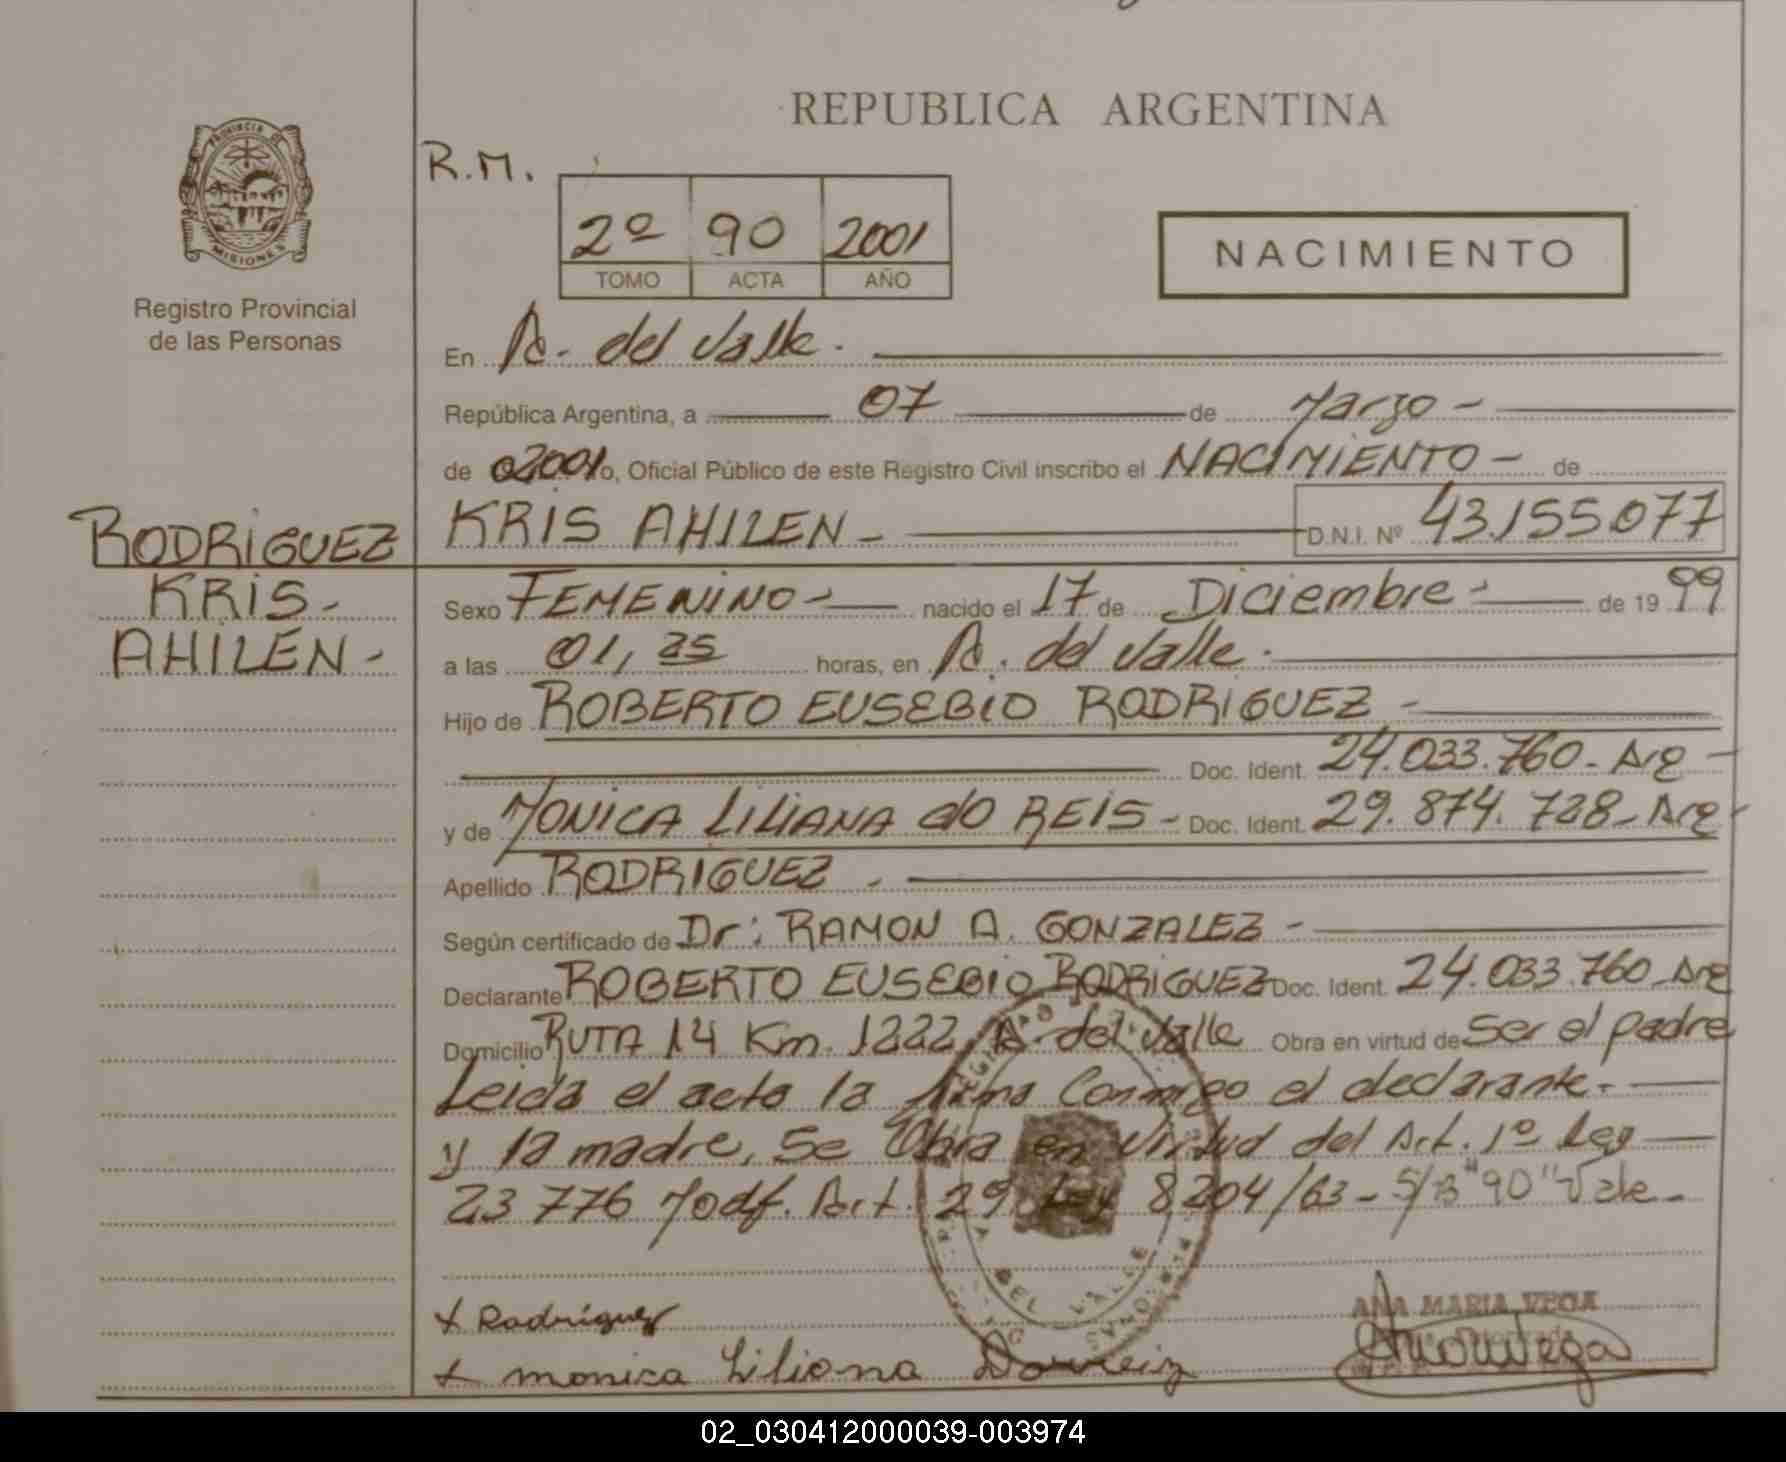 REPUBLICA ARGENTINA
PROVINCIA DE
MISIONES
Registro Provincial
de las Personas
R.M.
2º 90 2001
TOMO ACTA AÑO
NACIMIENTO
En A. del Valle.
República Argentina, a 07 de Marzo -
de 2001 o, Oficial Público de este Registro Civil inscribo el NACIMIENTO - de
KRIS AHILEN - D.N.I. Nº 43.155.077
RODRIGUEZ
KRIS -
AHILEN -
Sexo FEMENINO - nacido el 17 de Diciembre - de 19 99
a las 01,25 horas, en A. del Valle.
Hijo de ROBERTO EUSEBIO RODRIGUEZ -
Doc. Ident. 24.033.760 - Arg -
y de MONICA LILIANA dO REIS - Doc. Ident. 29.874.728 - Arg -
Apellido RODRIGUEZ .
Según certificado de Dr: RAMON A. GONZALEZ -
Declarante ROBERTO EUSEBIO RODRIGUEZ Doc. Ident. 24.033.760 - Arg
Domicilio RUTA 14 Km. 1222, A. del Valle Obra en virtud de Ser el padre
Leida el acta la firma Conmigo el declarante -
y la madre, Se Obra en Virtud del Art. 1º Ley
23 776 Modf. Art. 29 Ley 8204/63 - S/B "90" Vale -
DEL VALLE
+ Rodríguez
+ monica Liliana
ANA MARIA VEGA
02_030412000039-003974